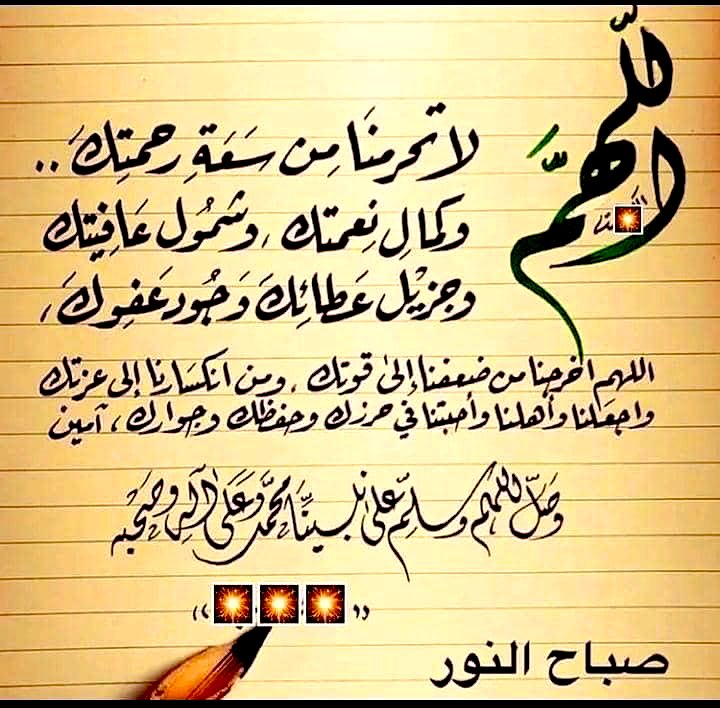 اللَّهُمَّ
لا تحرمنَا مِن سَعَةِ رحمتِكَ ..
وكمالِ نِعمتك ، وشمُول عَافِيتك
وجزيْل عَطائِكَ وَجُود عَفوِكَ ،
اللهم اخرجنا من ضعفنا إلى قوتك ، ومن انكسَارنا إلى عزتك
واجعَلنا وأهلنا وأحبتنا في حرزك وحفظك وجوارك ، آمين
وَصَلِّ اللهم وسلِّم على نبينَا محمَّد وَعَلى آلِهِ وصحبه
صباح النور